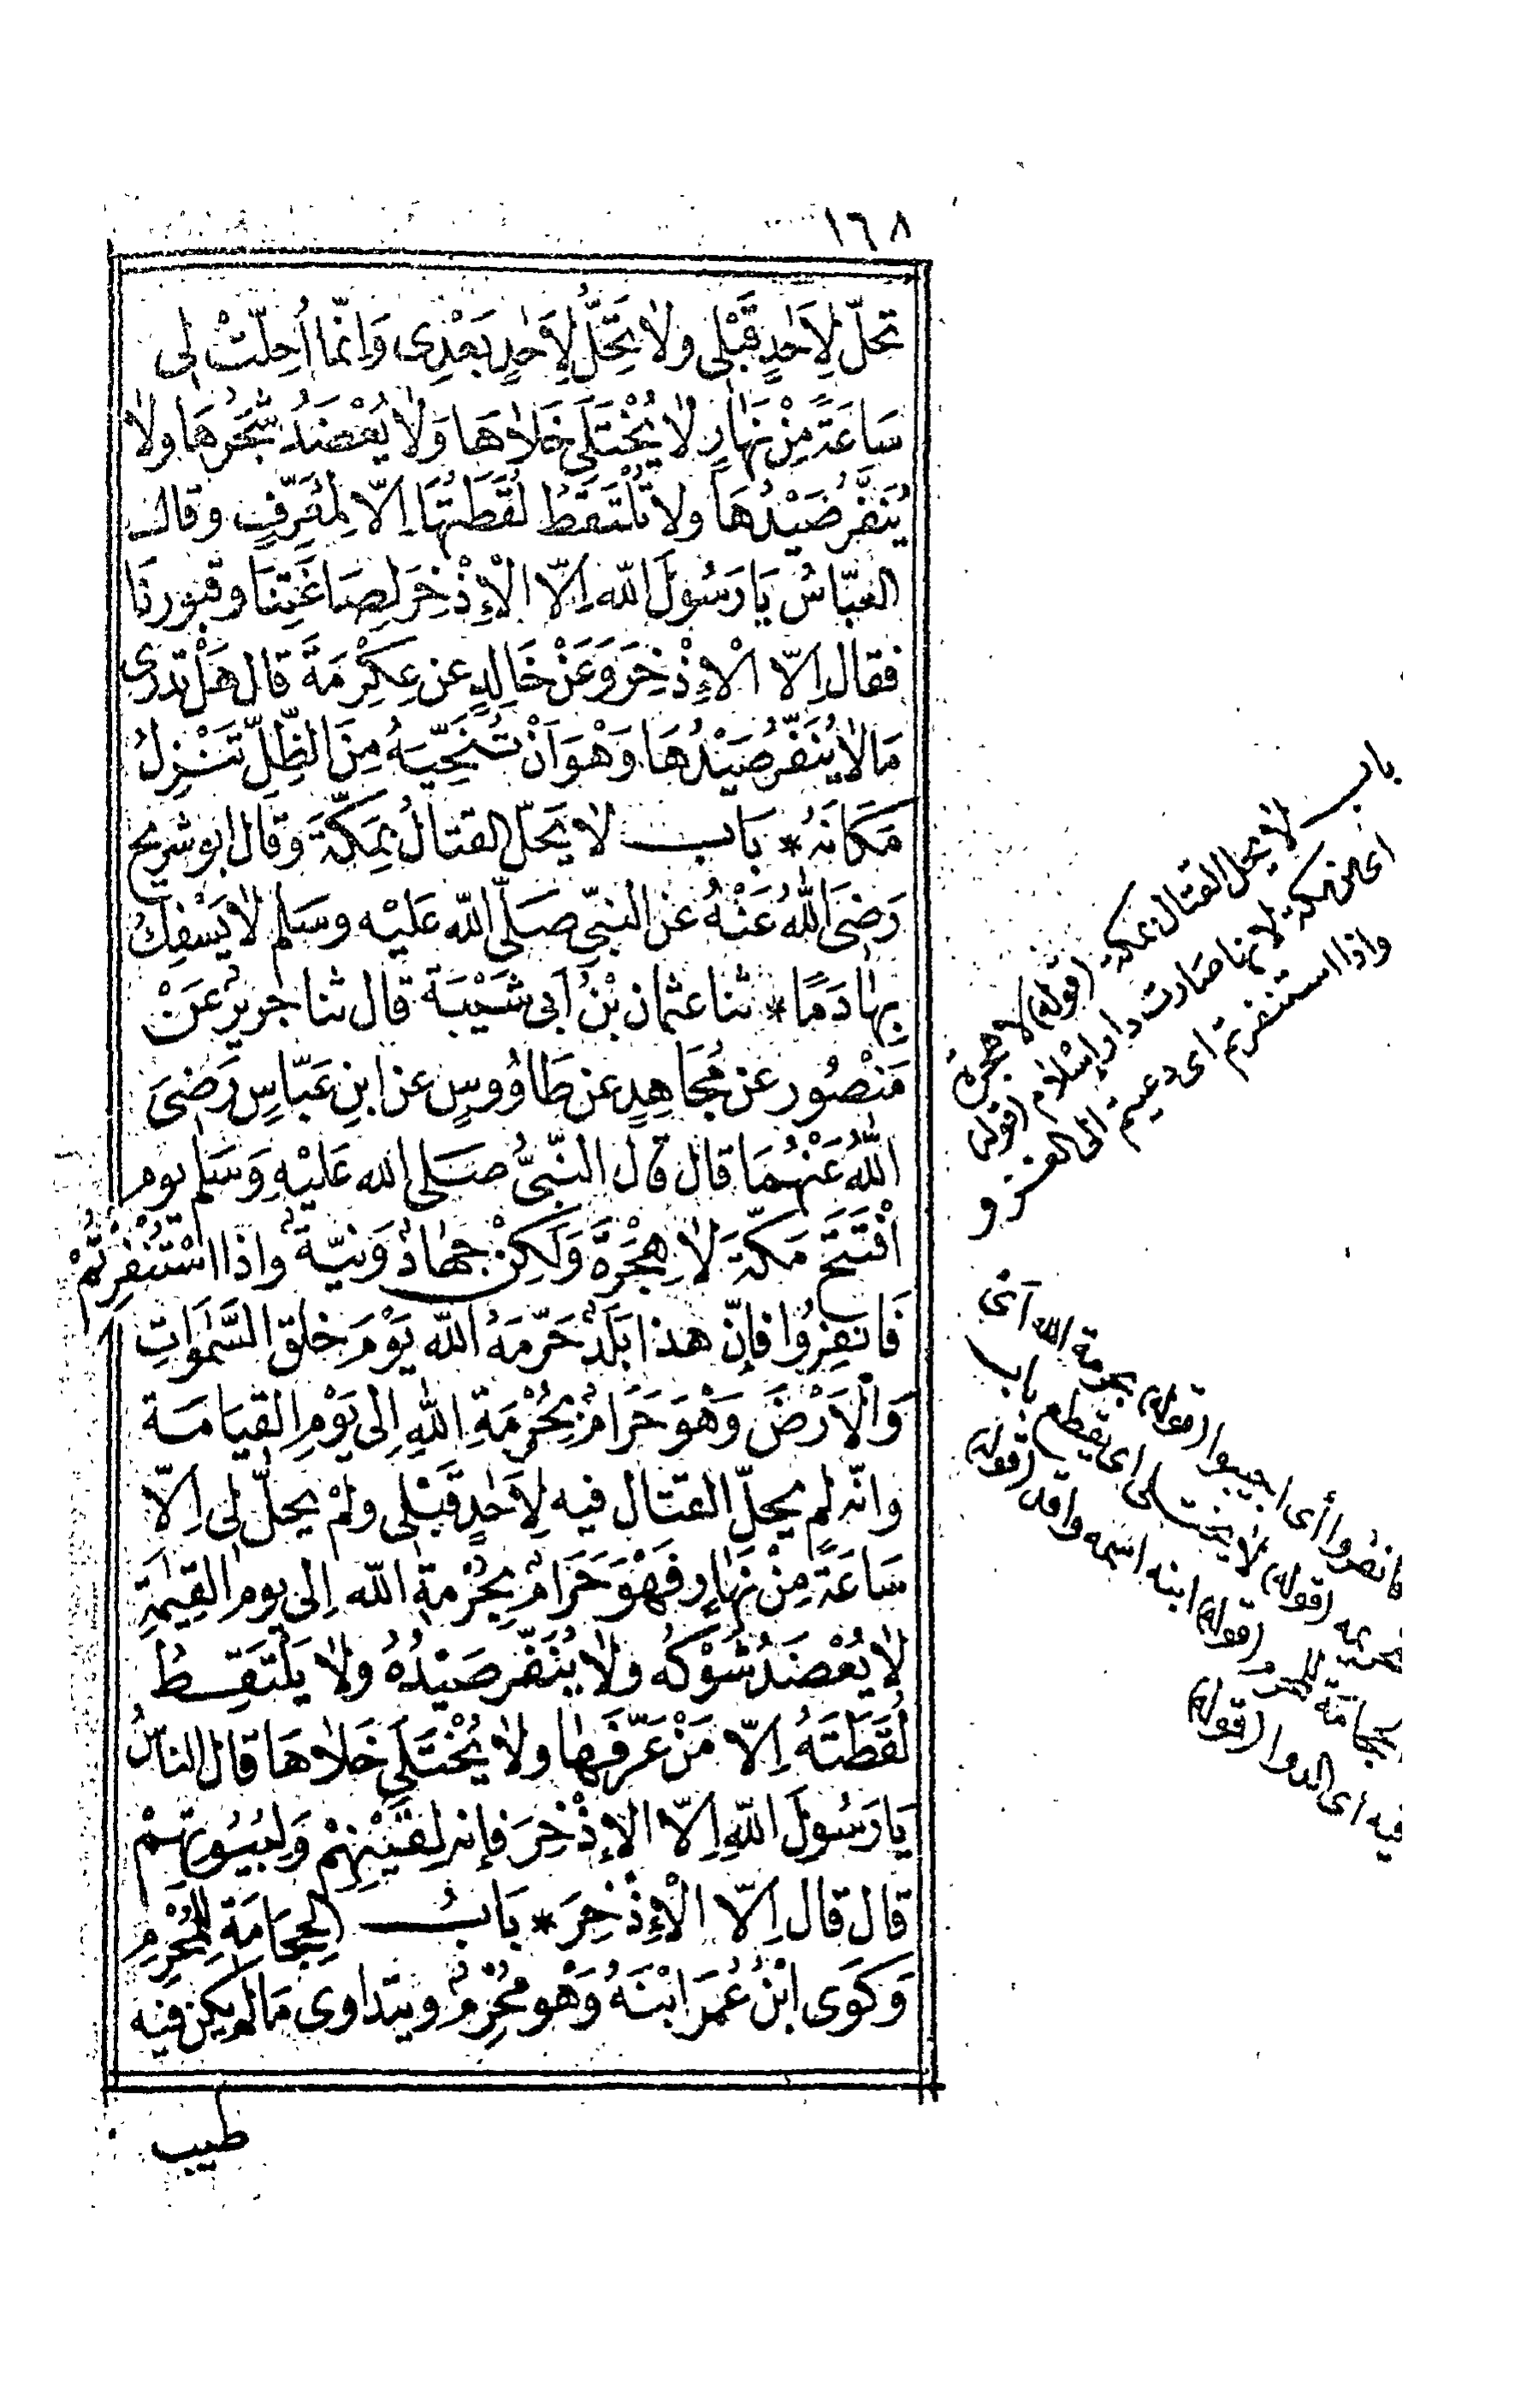 ١٦٨
تحلّ لِاَحَدٍ قَبْلى ولا تَحِلُّ لِاَحَدٍ بَعْدِى وَانّما اُحِلّتْ لى
سَاعَةً مِنْ نَهَارٍ لا يُخْتَلَى خَلَاهَا وَلا يُعْضَدُ شَجَرُهَا ولا
يُنَفَّرُ صَيْدُهَا ولا تُلْتَقَطُ لُقَطَتُهَا اِلّا لِمُعَرِّفٍ وقال
العَبّاسُ يَا رَسُولَ الله اِلّا الْاِذْخِرَ لِصَاغَتِنَا وقبورنَا
فقال اِلّا الْاِذْخِرَ وَعَنْ خَالِدٍ عن عِكْرِمَةَ قال هَلْ تدرى
مَا لا يُنَفَّرُ صَيْدُهَا وَهْوَ اَنْ تُنَحِّيَهُ مِنَ الظِّلِّ تَنْزِلُ
مَكَانَهُ * بَاب لا يَحِلّ القتالُ بِمَكّةَ وقَال ابو شريح
رَضِىَ اللهُ عَنْهُ عن النبِّى صَلّى الله عَلَيْه وسَلم لا يَسْفِكُ
بِهَا دَمًا * ثنا عثمان بْنُ اَبى شَيْبَةَ قال ثنا جريرٌ عَنْ
مَنْصُور عن مُجَاهِدٍ عن طَاوُوسٍ عن ابنِ عَبّاسٍ رَضِىَ
اللهُ عَنْهُمَا قال قال النّبىُّ صَلى الله عَلَيْهِ وَسَلم يوم
افْتَتَحَ مَكّةَ لا هِجْرَةَ وَلَكِنْ جهَادٌ وَنِيّةٌ واذا اسْتُنْفِرْتُمْ
فَانفِرُوا فإنّ هذا بَلَدٌ حَرّمَهُ الله يَوْمَ خلق السَّمٰوَاتِ
وَالْاَرْضَ وَهْوَ حَرَامٌ بِحُرْمَةِ اللهِ اِلى يَوْمِ القيَامَة
وانّه لم يحلّ القتال فيه لِاَحَدٍ قَبْلى ولمْ يحلّ لى اِلّا
سَاعَةً مِنْ نَهَارٍ فَهْوَ حَرَامٌ بِحُرْمَةِ الله اِلى يوم القِيٰمَةِ
لا يُعْضَدُ شَوْكُه ولا يُنَفّر صَيْدُهُ ولا يَلْتَقِطُ
لُقَطَتَهُ اِلّا مَنْ عَرّفَهَا ولا يُخْتَلَى خَلَاهَا قال الناسُ
يَا رَسُولَ اللهِ اِلّا الاِذْخِرَ فإنه لِقَيْنِهِمْ وَلِبُيُوتهِمْ
قال قال اِلّا الْاِذْخِرَ * بَابُ الحِجَامَةِ لِلْمُحْرِمِ
وَكَوَى ابْنُ عُمَرَ ابْنَهُ وَهْو مُحْرِمٌ ويتداوى مَا لم يكن فيه
طيب
باب لا يحل القتال بمكة (قوله) لا هجرة
اى من مكة لانها صارت دار إسْلام (قوله)
واذا استنفرتم اى دعيتم الى الغزو
فانفروا أى اجيبوا (قوله) بحرمة الله اى
تحريمه (قوله) لا يختلى اى يقطع باب
الحجامة للمحرم (قوله) ابنه اسمه واقد (قوله)
فيه اى الدوا (قوله)